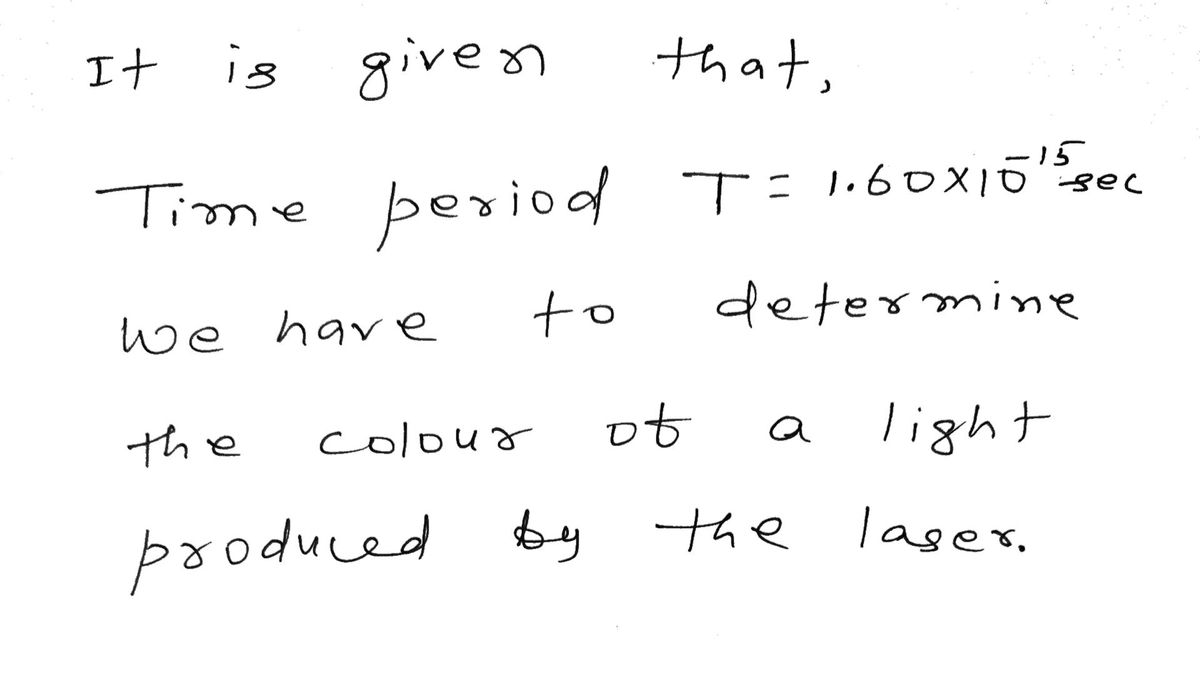 It is given that,
Time period T = 1.60×10⁻¹⁵ sec
We have to determine
the colour of a light
produced by the laser.